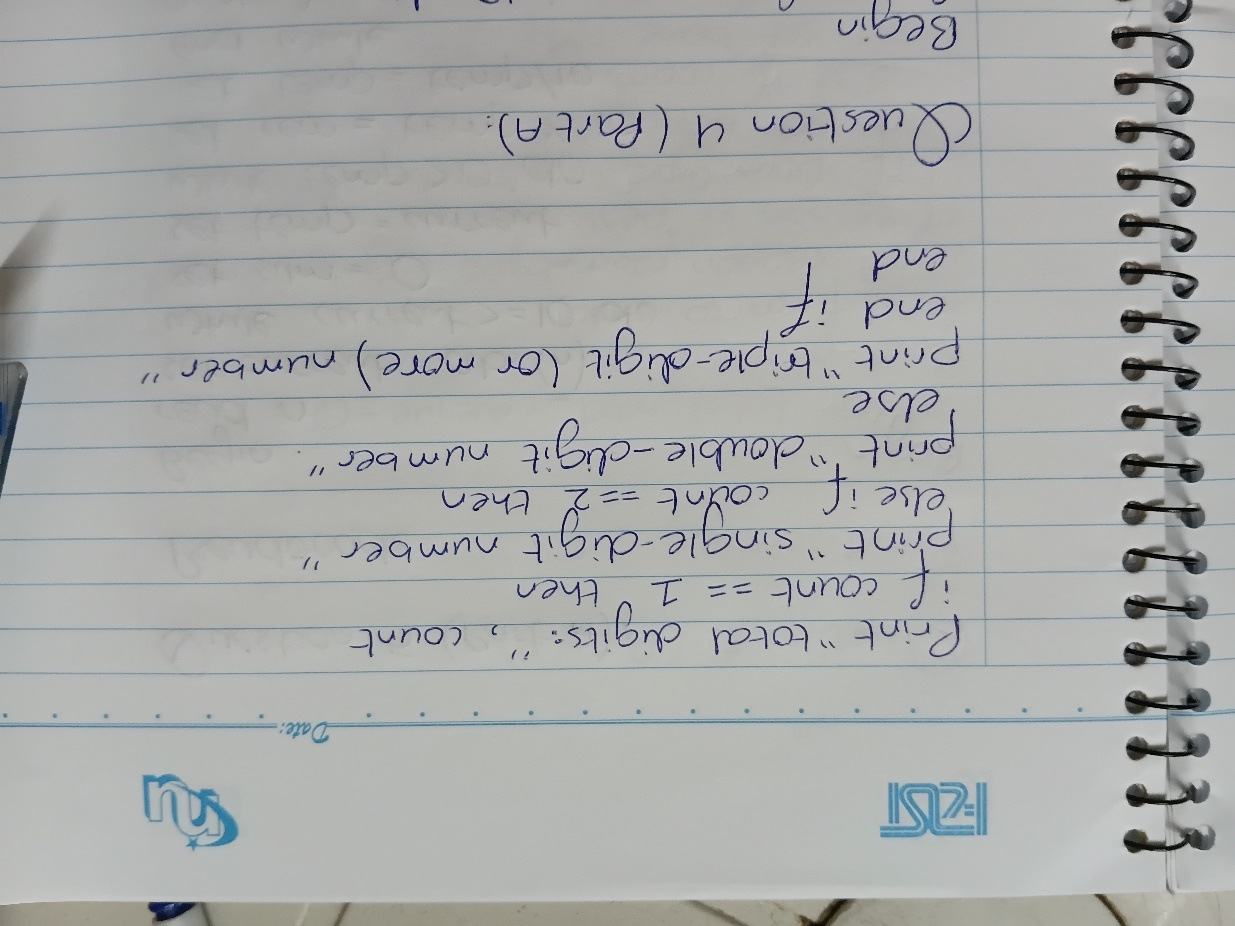 FAST
nu
Date:
Print "total digits:", count
if count == 1 then
print "single-digit number"
else if count == 2 then
print "double-digit number".
else
print "triple-digit (or more) number"
end if
end
Question 4 (Part A):
Begin